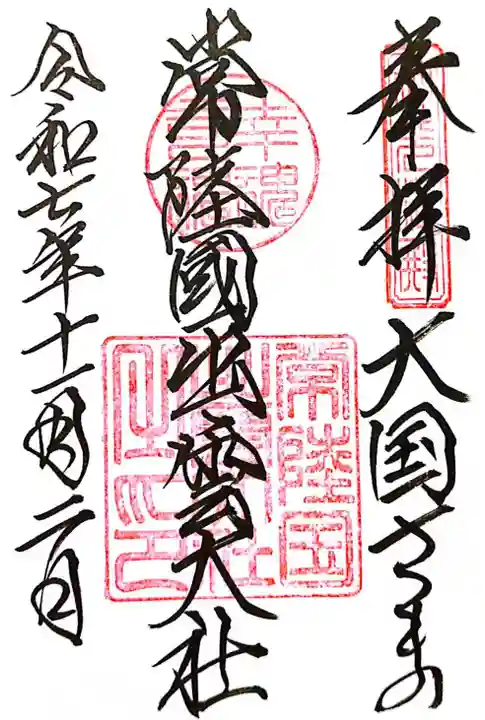 奉拝 大国さまの
常陸國出雲大社
令和七年十一月二日
常陸国